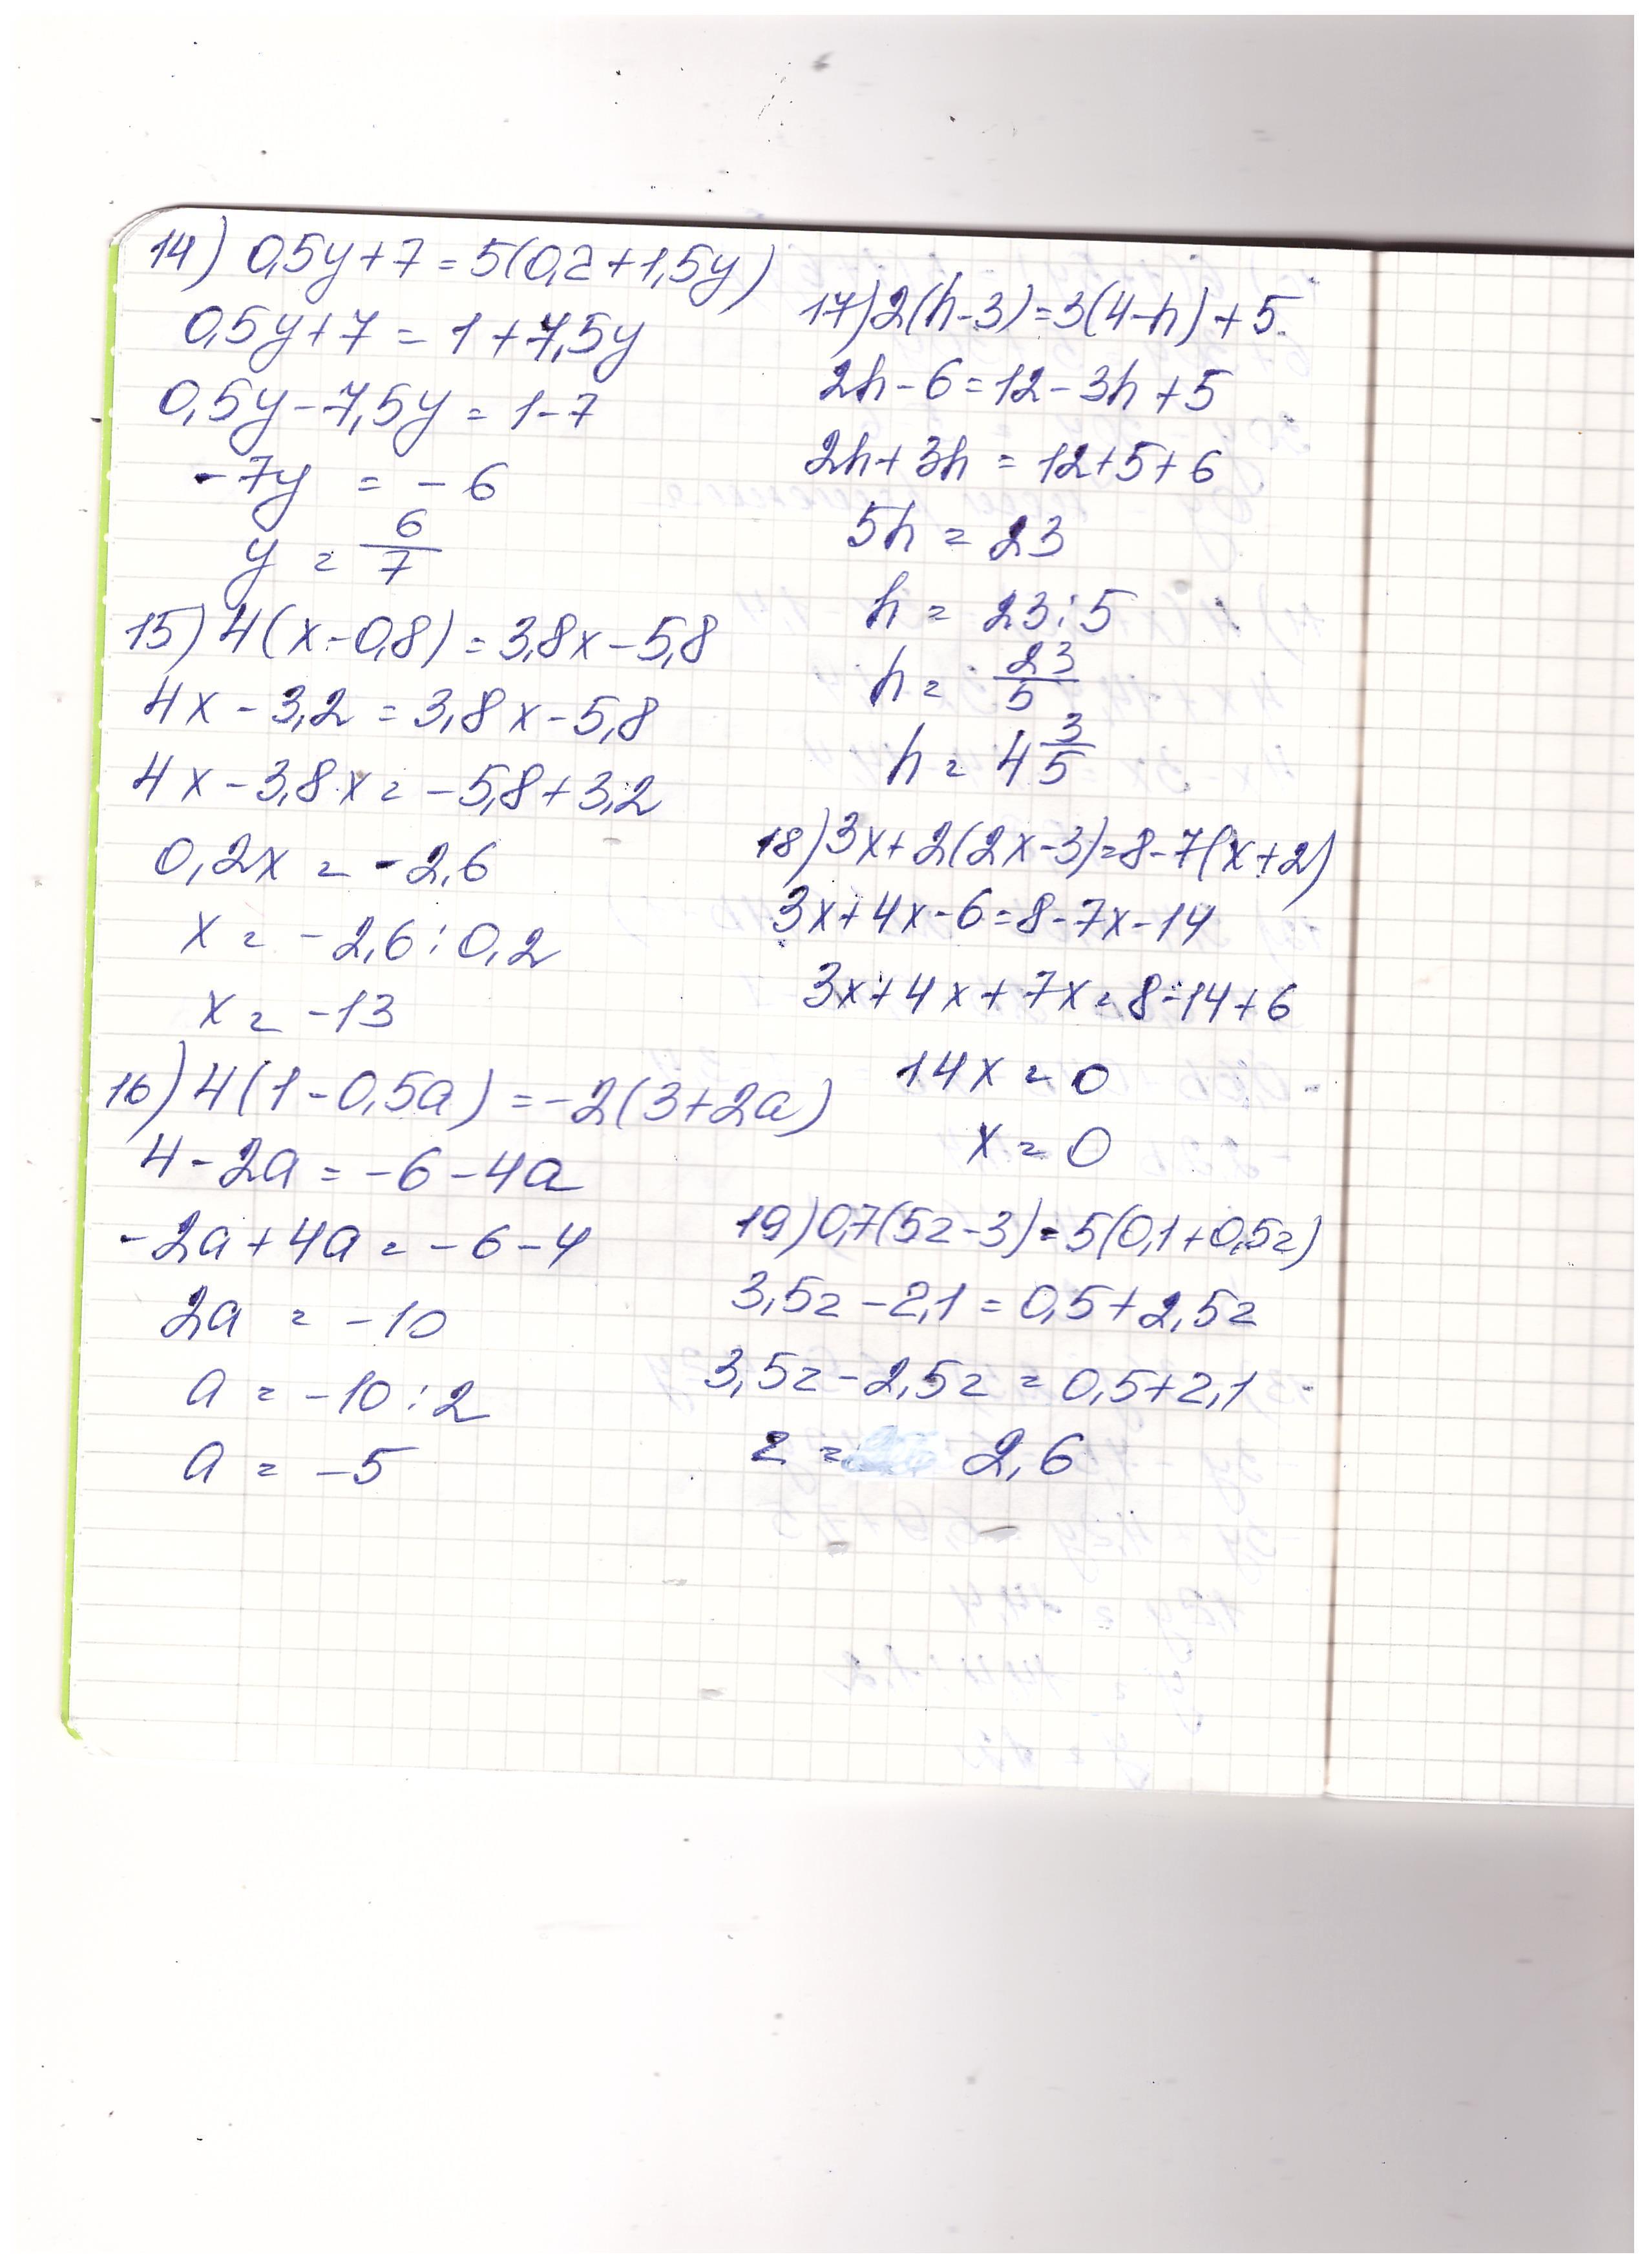 14) 0,5y+7=5(0,2+1,5y)
0,5y+7=1+7,5y
0,5y-7,5y=1-7
-7y = -6
y = 6/7
15) 4(x-0,8)=3,8x-5,8
4x-3,2=3,8x-5,8
4x-3,8x=-5,8+3,2
0,2x=-2,6
x=-2,6:0,2
x=-13
16) 4(1-0,5a)=-2(3+2a)
4-2a=-6-4a
-2a+4a=-6-4
2a = -10
a = -10:2
a = -5
17) 2(h-3)=3(4-h)+5
2h-6=12-3h+5
2h+3h=12+5+6
5h=23
h=23:5
h= 23/5
h=4 3/5
18) 3x+2(2x-3)=8-7(x+2)
3x+4x-6=8-7x-14
3x+4x+7x=8-14+6
14x=0
x=0
19) 0,7(5z-3)=5(0,1+0,5z)
3,5z-2,1=0,5+2,5z
3,5z-2,5z=0,5+2,1
z= 2,6